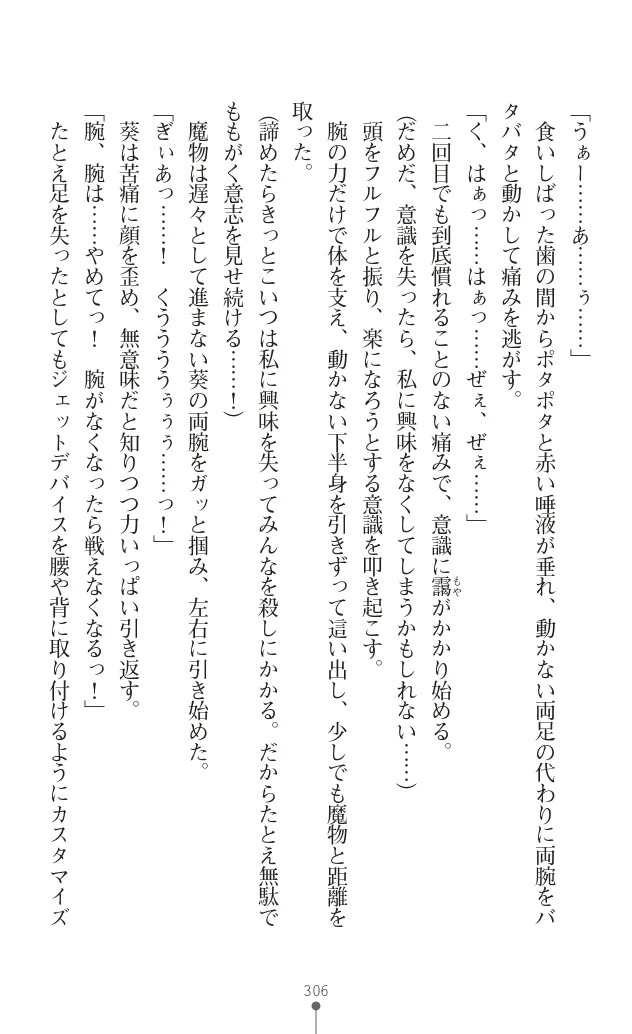 「うぁー……あ……ぅ……」
　食いしばった歯の間からポタポタと赤い唾液が垂れ、動かない両足の代わりに両腕をバ
タバタと動かして痛みを逃がす。
「く、はぁっ……はぁっ……ぜぇ、ぜぇ……」
　二回目でも到底慣れることのない痛みで、意識に靄もやがかかり始める。
（だめだ、意識を失ったら、私に興味をなくしてしまうかもしれない……）
　頭をフルフルと振り、楽になろうとする意識を叩き起こす。
　腕の力だけで体を支え、動かない下半身を引きずって這い出し、少しでも魔物と距離を
取った。
（諦めたらきっとこいつは私に興味を失ってみんなを殺しにかかる。だからたとえ無駄で
ももがく意志を見せ続ける……！）
　魔物は遅々として進まない葵の両腕をガッと掴み、左右に引き始めた。
「ぎぃあっ……！　くうううぅぅぅ……っ！」
　葵は苦痛に顔を歪め、無意味だと知りつつ力いっぱい引き返す。
「腕、腕は……やめてっ！　腕がなくなったら戦えなくなるっ！」
　たとえ足を失ったとしてもジェットデバイスを腰や背に取り付けるようにカスタマイズ
306